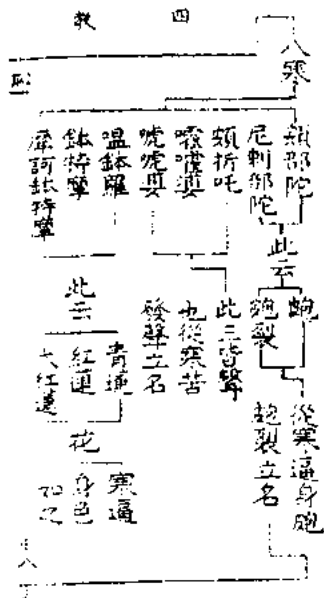 四教
八寒
頞部陀
尼剌部陀
頞折吒
嚯嚯婆
唬唬婆
嗢鉢羅
鉢特摩
摩訶鉢特摩
此云
皰
皰裂
從寒逼身皰
皰裂立名
此三皆聲
也從寒苦
發聲立名
此云
青蓮
紅蓮
大紅蓮
花
寒逼
身色
如之
十八